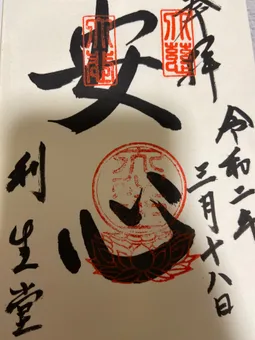 奉拝
令和二年三月十八日
安心
利生堂